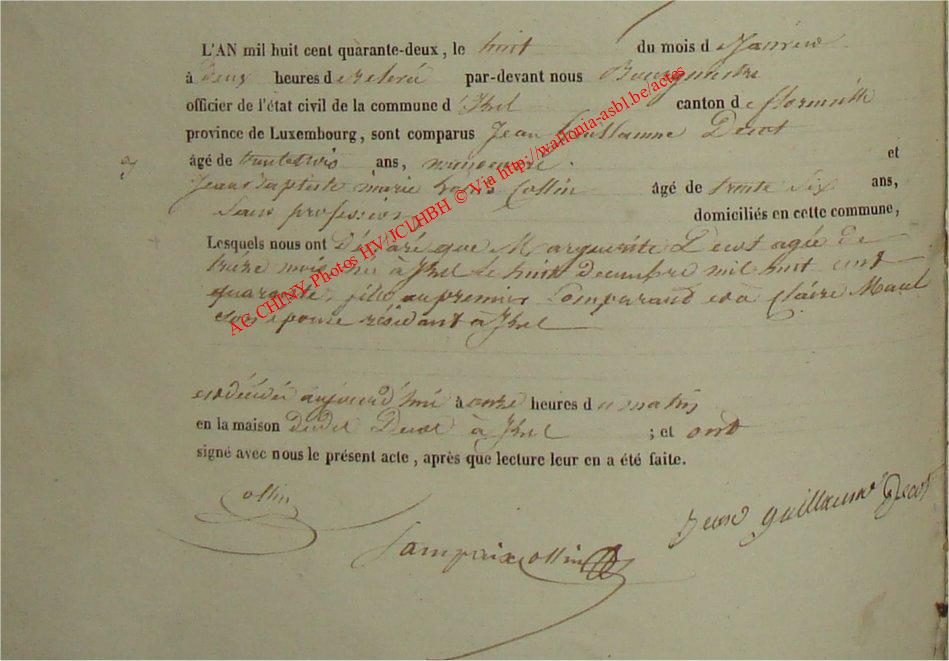 L'AN mil huit cent quarante-deux, le huit du mois de Janvier
à Deux heures de relevée par-devant nous Bourgmestre
officier de l'état civil de la commune d'Izel canton de florenville
province de Luxembourg, sont comparus Jean Guillaume Decot
âgé de trentetrois ans, et
Jean Baptiste marie Collin âgé de trente Six ans,
Sans profession domiciliés en cette commune,
Lesquels nous ont Déclaré que Marguerite Decot agée de
treize mois née à Izel Le huit decembre mil huit cent
quarante, fille au premier Comparant et à Claire Maul
Son épouse résidant à Izel
est décédée aujourd'hui à onze heures du matin
en la maison dudit Decot à Izel ; et ont
signé avec nous le présent acte, après que lecture leur en a été faite.
Collin
Jean guillaume Decot
Lamprix Collin
AC CHINY Photos HV/JCL/HBH © Via http://wallonia-asbl.be/actes